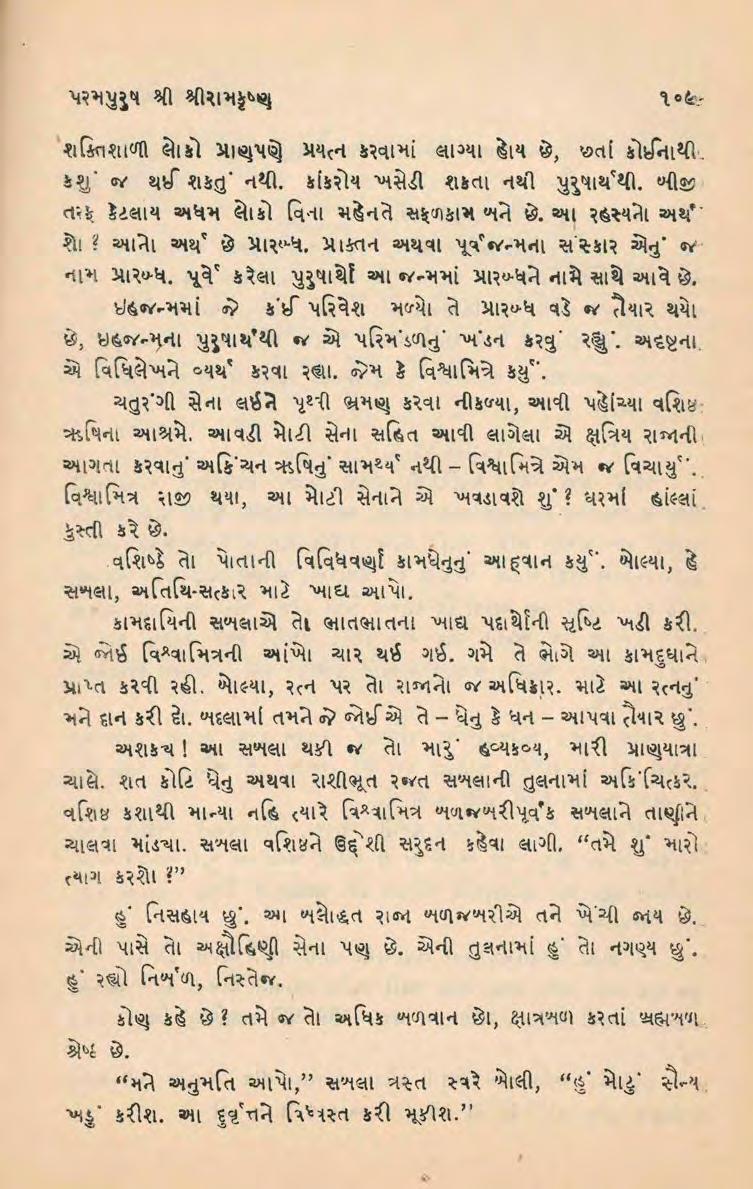 પરમપુરુષ શ્રી શ્રીરામકૃષ્ણ ૧૦૯
શક્તિશાળી લોકો પ્રાણપણે પ્રયત્ન કરવામાં લાગ્યા હોય છે, છતાં કોઈનાથી
કશું જ થઈ શકતું નથી. કાંકરોય ખસેડી શકતા નથી પુરુષાર્થથી. બીજી
તરફ કેટલાય અધમ લોકો વિના મહેનતે સફળકામ બને છે. આ રહસ્યનો અર્થ
શો ? આનો અર્થ છે પ્રારબ્ધ. પ્રાક્તન અથવા પૂર્વજન્મના સંસ્કાર એનું જ
નામ પ્રારબ્ધ. પૂર્વે કરેલા પુરુષાર્થો આ જન્મમાં પ્રારબ્ધને નામે સાથે આવે છે.
ઇહજન્મમાં જે કંઈ પરિવેશ મળ્યો તે પ્રારબ્ધ વડે જ તૈયાર થયો
છે, ઇહજન્મના પુરુષાર્થથી જ એ પરિમંડળનું ખંડન કરવું રહ્યું. અદૃષ્ટના
એ વિધિલેખને વ્યર્થ કરવા રહ્યા. જેમ કે વિશ્વામિત્રે કર્યું.
ચતુરંગી સેના લઈને પૃથ્વી ભ્રમણ કરવા નીકળ્યા, આવી પહોંચ્યા વશિષ્ઠ
ઋષિના આશ્રમે. આવડી મોટી સેના સહિત આવી લાગેલા એ ક્ષત્રિય રાજાની
આગતા કરવાનું અકિંચન ઋષિનું સામર્થ્ય નથી – વિશ્વામિત્રે એમ જ વિચાર્યું.
વિશ્વામિત્ર રાજી થયા, આ મોટી સેનાને એ ખવડાવશે શું ? ઘરમાં હાંલ્લાં
કુસ્તી કરે છે.
વશિષ્ઠે તો પોતાની વિવિધવર્ણી કામધેનુનું આહ્‌વાન કર્યું. બોલ્યા, હે
સબલા, અતિથિ-સત્કાર માટે ખાદ્ય આપો.
કામદાયિની સબલાએ તો ભાતભાતના ખાદ્ય પદાર્થોની સૃષ્ટિ ખડી કરી.
એ જોઈ વિશ્વામિત્રની આંખો ચાર થઈ ગઈ. ગમે તે ભોગે આ કામદુધાને
પ્રાપ્ત કરવી રહી. બોલ્યા, રત્ન પર તો રાજાનો જ અધિકાર. માટે આ રત્નનું
મને દાન કરી દો. બદલામાં તમને જે જોઈએ તે – ધેનુ કે ધન – આપવા તૈયાર છું.
અશક્ય ! આ સબલા થકી જ તો મારું હવ્યકવ્ય, મારી પ્રાણયાત્રા
ચાલે. શત કોટિ ધેનુ અથવા રાશીભૂત રજત સબલાની તુલનામાં અકિંચિત્કર.
વશિષ્ઠ કશાથી માન્યા નહિ ત્યારે વિશ્વામિત્ર બળજબરીપૂર્વક સબલાને તાણીને
ચાલવા માંડ્યા. સબલા વશિષ્ઠને ઉદ્દેશી સરુદન કહેવા લાગી. “તમે શું મારો
ત્યાગ કરશો ?”
હું નિસહાય છું. આ બલોદ્ધત રાજા બળજબરીએ તને ખેંચી જાય છે.
એની પાસે તો અક્ષૌહિણી સેના પણ છે. એની તુલનામાં હું તો નગણ્ય છું.
હું રહ્યો નિર્બળ, નિસ્તેજ.
કોણ કહે છે ? તમે જ તો અધિક બળવાન છો, ક્ષાત્રબળ કરતાં બ્રહ્મબળ
શ્રેષ્ઠ છે.
“મને અનુમતિ આપો,” સબલા ત્રસ્ત સ્વરે બોલી, “હું મોટું સૈન્ય
ખડું કરીશ. આ દુર્વૃત્તને વિધ્વસ્ત કરી મૂકીશ.”